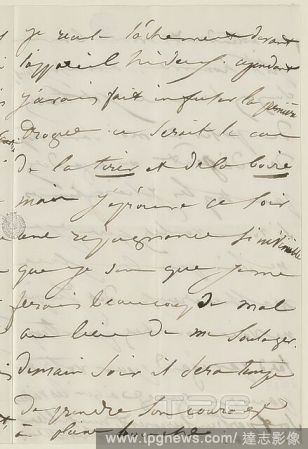 je recule lâchement devant
l'appareil hideux. cependant
j'avais fait infuser la première
drogue ce serait le cas
de la tirer et de la boire
mais j'éprouve ce soir
une repugnance si
que je sens que je me
ferais beaucoup de mal
au lieu de me soulager.
demain soir il sera temps
de prendre son courage
à pleine
TPG
www.tpgnews.com / 達志影像